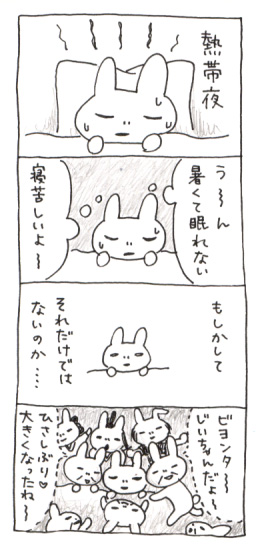 熱帯夜
う〜ん
暑くて眠れない
寝苦しいよ〜
もしかして
それだけでは
ないのか・・・・
ビヨンタ〜
じいちゃんだよ〜
ひさしぶり♡
大きくなったね〜